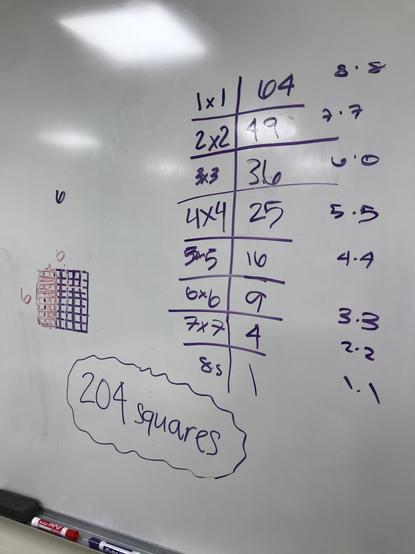 1x1 64 8·8
2x2 49 7·7
3x3 36 6·6
4x4 25 5·5
5x5 16 4·4
6x6 9 3·3
7x7 4 2·2
8·8 1 1·1
6
6
6
204 squares